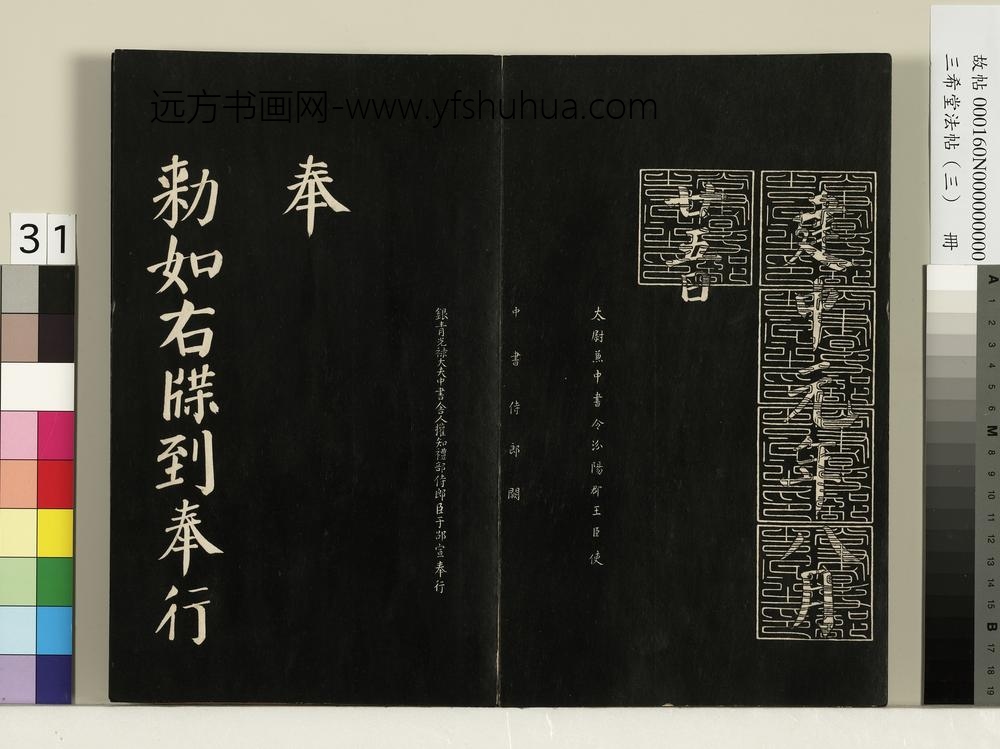 远方书画网-www.yfshuhua.com
故帖 000160N000000000
三希堂法帖(三) 冊
建中元年八月
廿五日
太尉兼中書令汾陽郡王臣使
中書侍郎闕
銀青光祿大夫中書舍人權知禮部侍郎臣于邵宣奉行
奉
勑如右牒到奉行
31
A 1 2 3 4 5 6 M 8 9 10 11 12 13 14 15 B 17 18 19